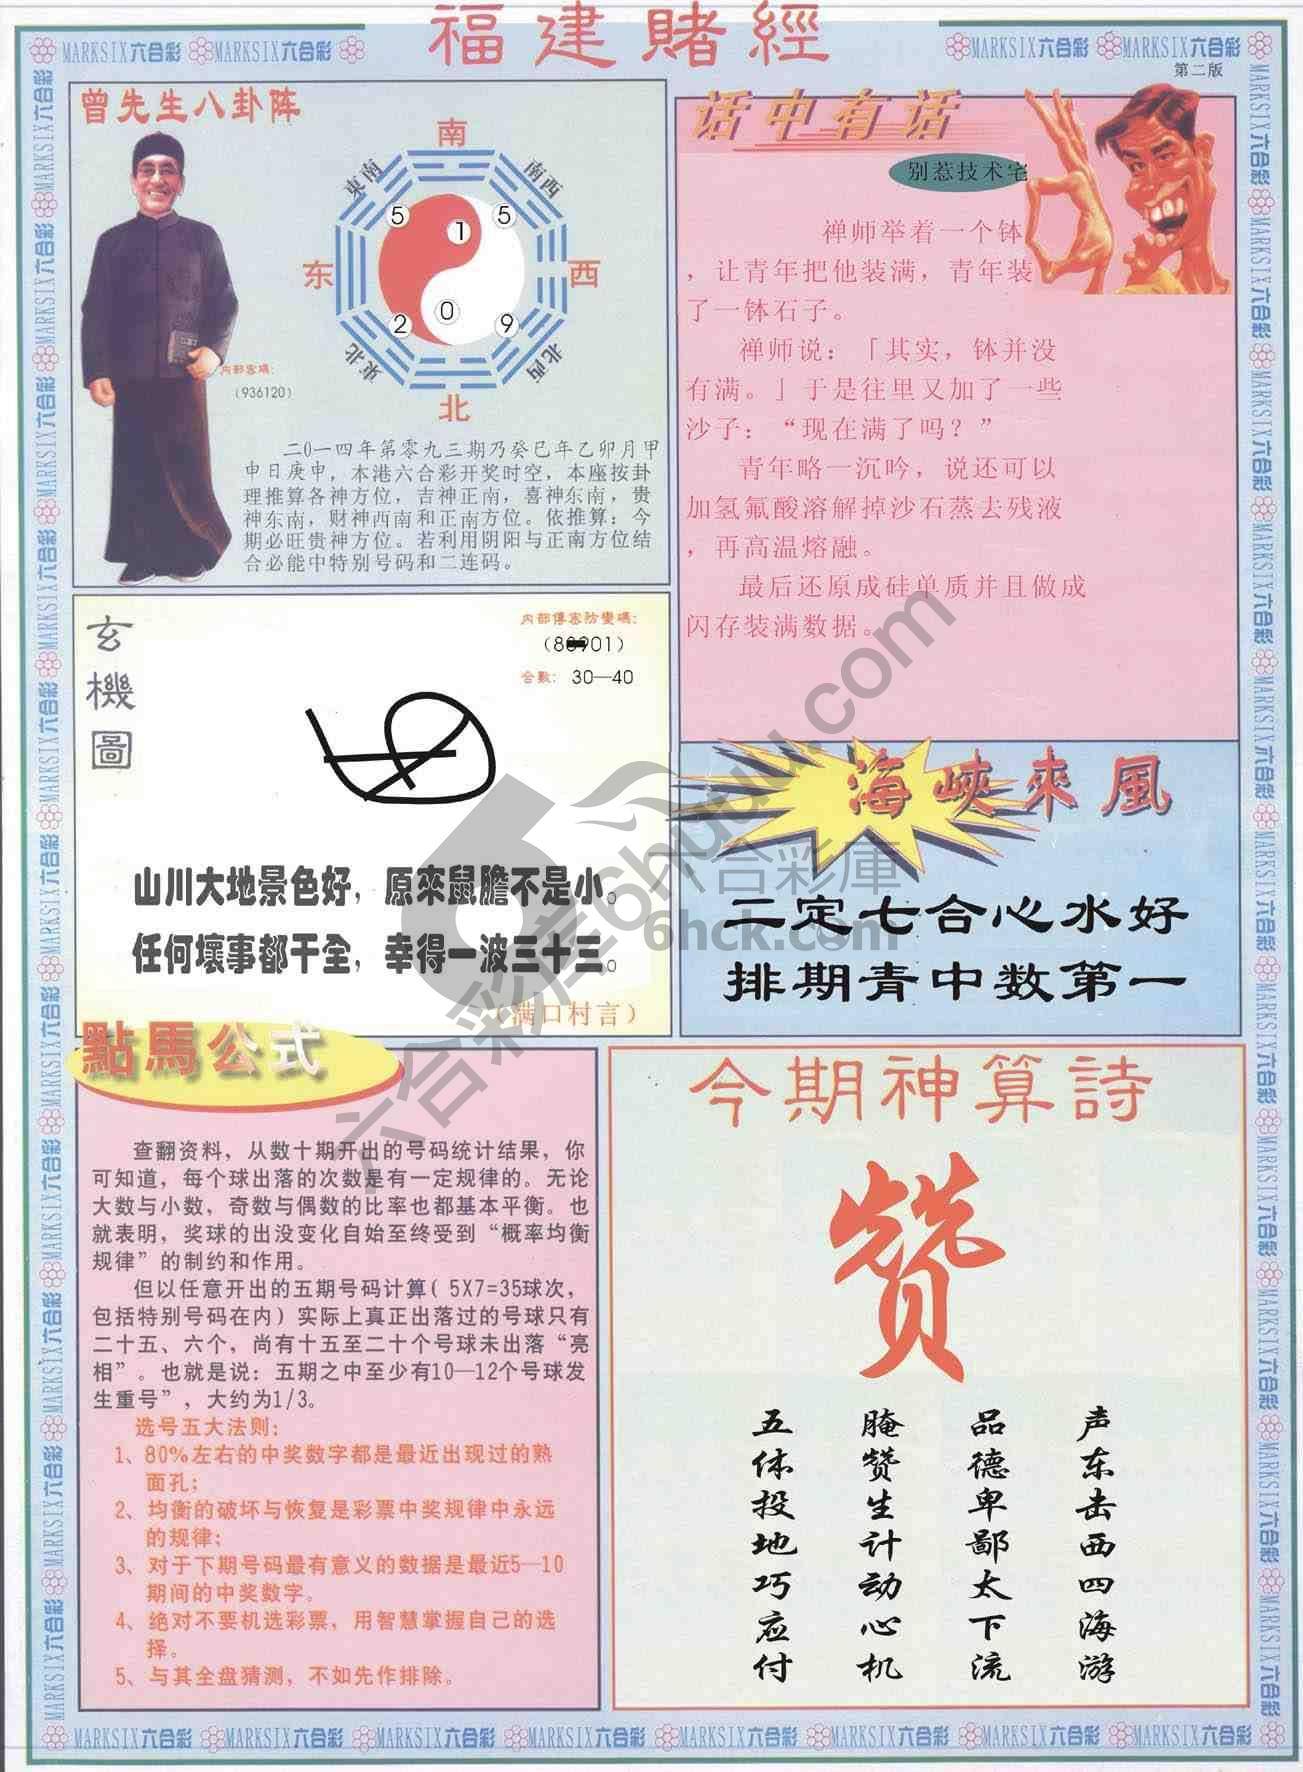 福建賭經
MARKSIX六合彩 MARKSIX六合彩
MARKSIX六合彩 MARKSIX六合彩
第二版
曾先生八卦阵
南
東南
南西
5 1 5
东
西
2 0 9
東北
北西
北
内部密碼：
(936120)
二0一四年第零九三期乃癸巳年乙卯月甲
申日庚申，本港六合彩开奖时空，本座按卦
理推算各神方位，吉神正南，喜神东南，贵
神东南，财神西南和正南方位。依推算：今
期必旺贵神方位。若利用阴阳与正南方位结
合必能中特别号码和二连码。
话中有话
别惹技术宅
禅师举着一个钵
，让青年把他装满，青年装
了一钵石子。
禅师说：「其实，钵并没
有满。」于是往里又加了一些
沙子：“现在满了吗？”
青年略一沉吟，说还可以
加氢氟酸溶解掉沙石蒸去残液
，再高温熔融。
最后还原成硅单质并且做成
闪存装满数据。
玄機圖
内部傳密防變碼：
合數：30—40
山川大地景色好，原來鼠膽不是小。
任何壞事都干全，幸得一波三十三。
（满口村言）
海峽來風
二定七合心水好
排期青中数第一
六合彩庫
6hck.com
六合彩库6huuu.com
點馬公式
查翻资料，从数十期开出的号码统计结果，你
可知道，每个球出落的次数是有一定规律的。无论
大数与小数，奇数与偶数的比率也都基本平衡。也
就表明，奖球的出没变化自始至终受到“概率均衡
规律”的制约和作用。
但以任意开出的五期号码计算（5X7=35球次，
包括特别号码在内）实际上真正出落过的号球只有
二十五、六个，尚有十五至二十个号球未出落“亮
相”。也就是说：五期之中至少有10—12个号球发
生重号”，大约为1/3。
选号五大法则：
1、80%左右的中奖数字都是最近出现过的熟
面孔；
2、均衡的破坏与恢复是彩票中奖规律中永远
的规律；
3、对于下期号码最有意义的数据是最近5—10
期间的中奖数字。
4、绝对不要机选彩票，用智慧掌握自己的选
择。
5、与其全盘猜测，不如先作排除。
今期神算詩
赞
声东击西四海游
品德卑鄙太下流
腌赞生计动心机
五体投地巧应付
MARKSIX六合彩 MARKSIX六合彩 MARKSIX六合彩 MARKSIX六合彩 MARKSIX六合彩 MARKSIX六合彩 MARKSIX六合彩 MARKSIX六合彩